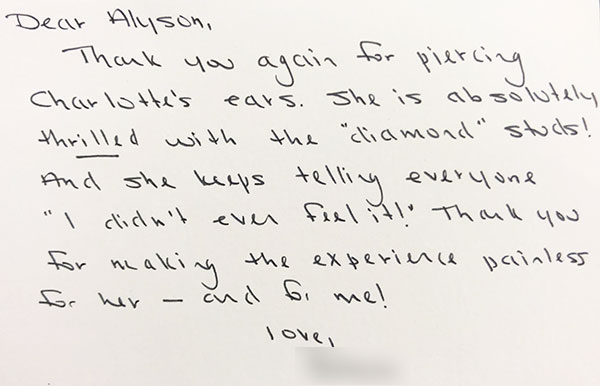 Dear Alyson,
Thank you again for piercing
Charlotte's ears. She is absolutely
thrilled with the "diamond" studs!
And she keeps telling everyone
"I didn't even feel it!" Thank you
for making the experience painless
for her – and for me!
love,